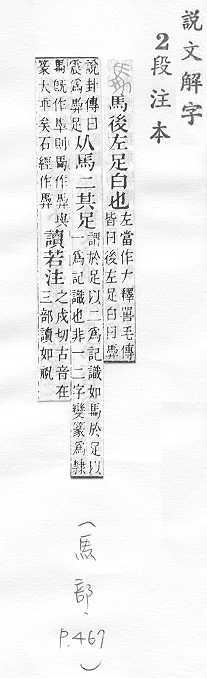 說文解字
2段注本
馬後左足白也
左當作ナ釋嘼毛傳
皆曰後左足白馵
說卦傳曰
震爲馵足
从馬二其足
謂於足以二爲記識如馬於足以
一爲記識也非一二字變篆爲隸
篆大乖矣石經作馵
讀若注
之戍切古音在
三部讀如祝
(馬部、P.467)